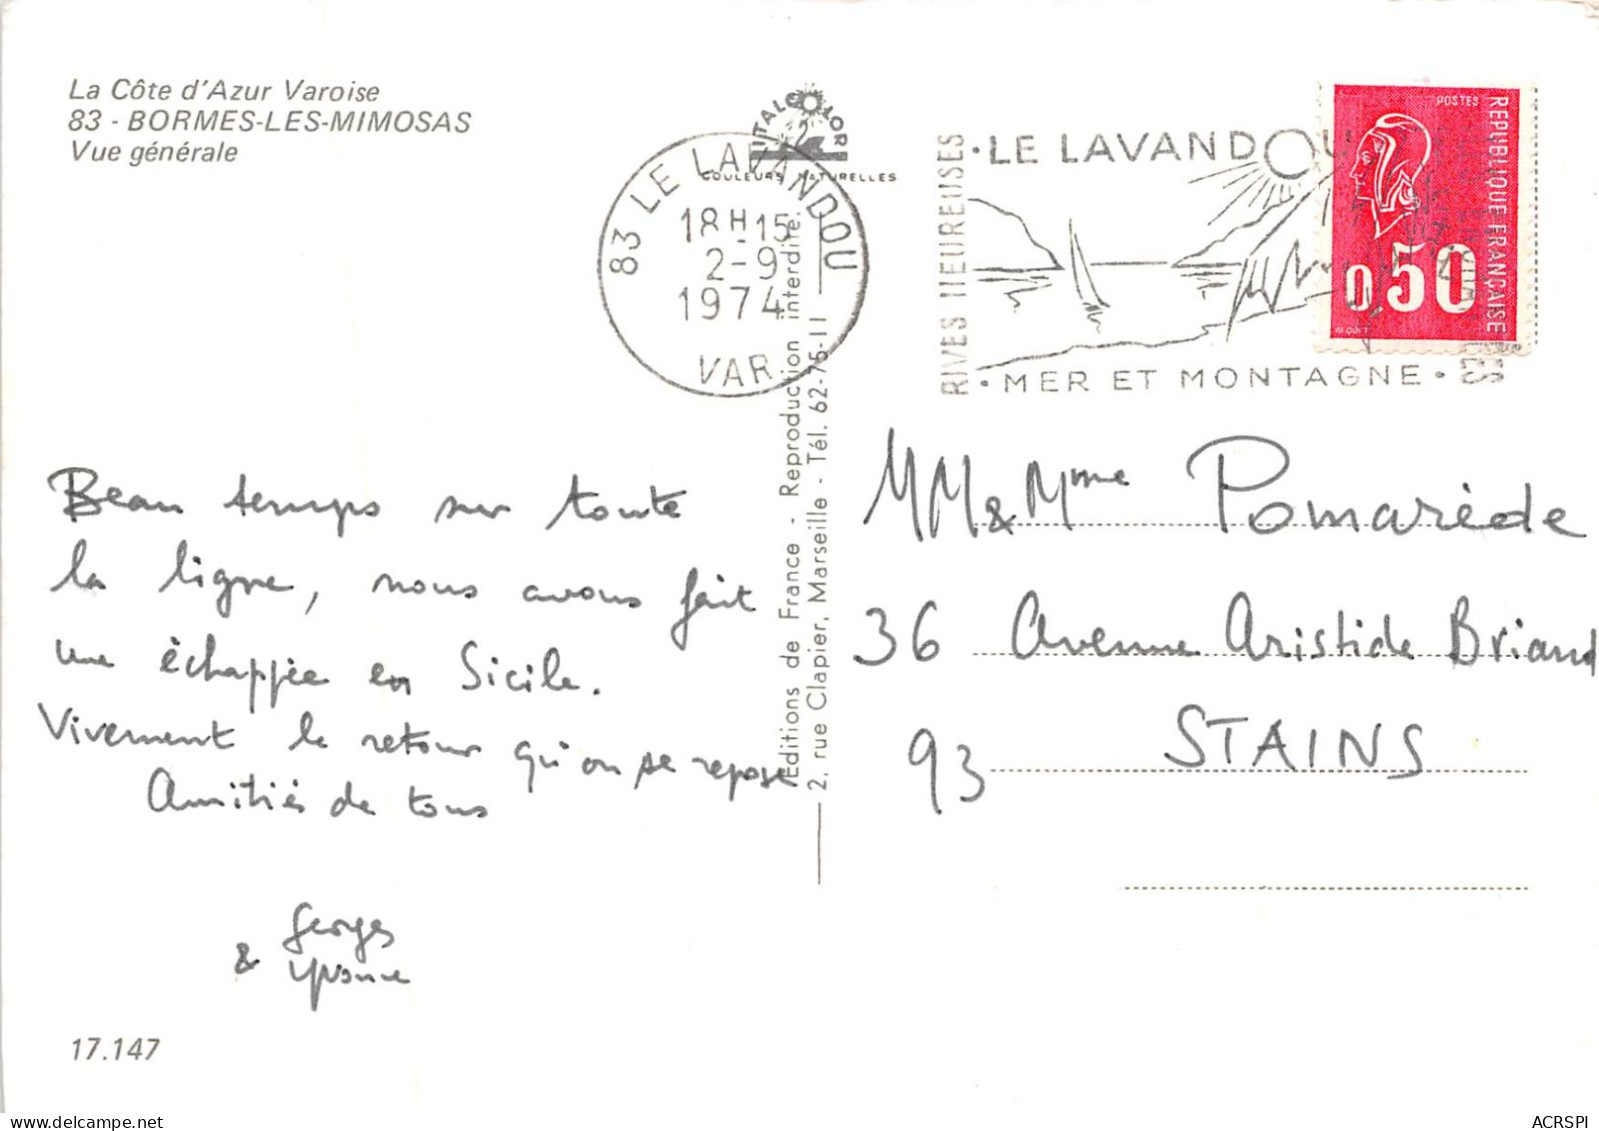 La Côte d'Azur Varoise
83 - BORMES-LES-MIMOSAS
Vue générale
ITALCOLOR
COULEURS NATURELLES
83 LE LAVANDOU
18H15
2-9
1974
VAR
RIVES HEUREUSES
• LE LAVANDOU
• MER ET MONTAGNE •
POSTES
REPUBLIQUE FRANÇAISE
0,50
Beau temps sur toute
la ligne, nous avons fait
une échappée en Sicile.
Vivement le retour qu'on se repose
Amitiés de tous
Georges
& Yvonne
Editions de France - Reproduction interdite.
2, rue Clapier, Marseille - Tél. 62-75-11
MM & Mme Pomarède
36 Avenue Aristide Briand
93 STAINS
17.147
ACRSPI